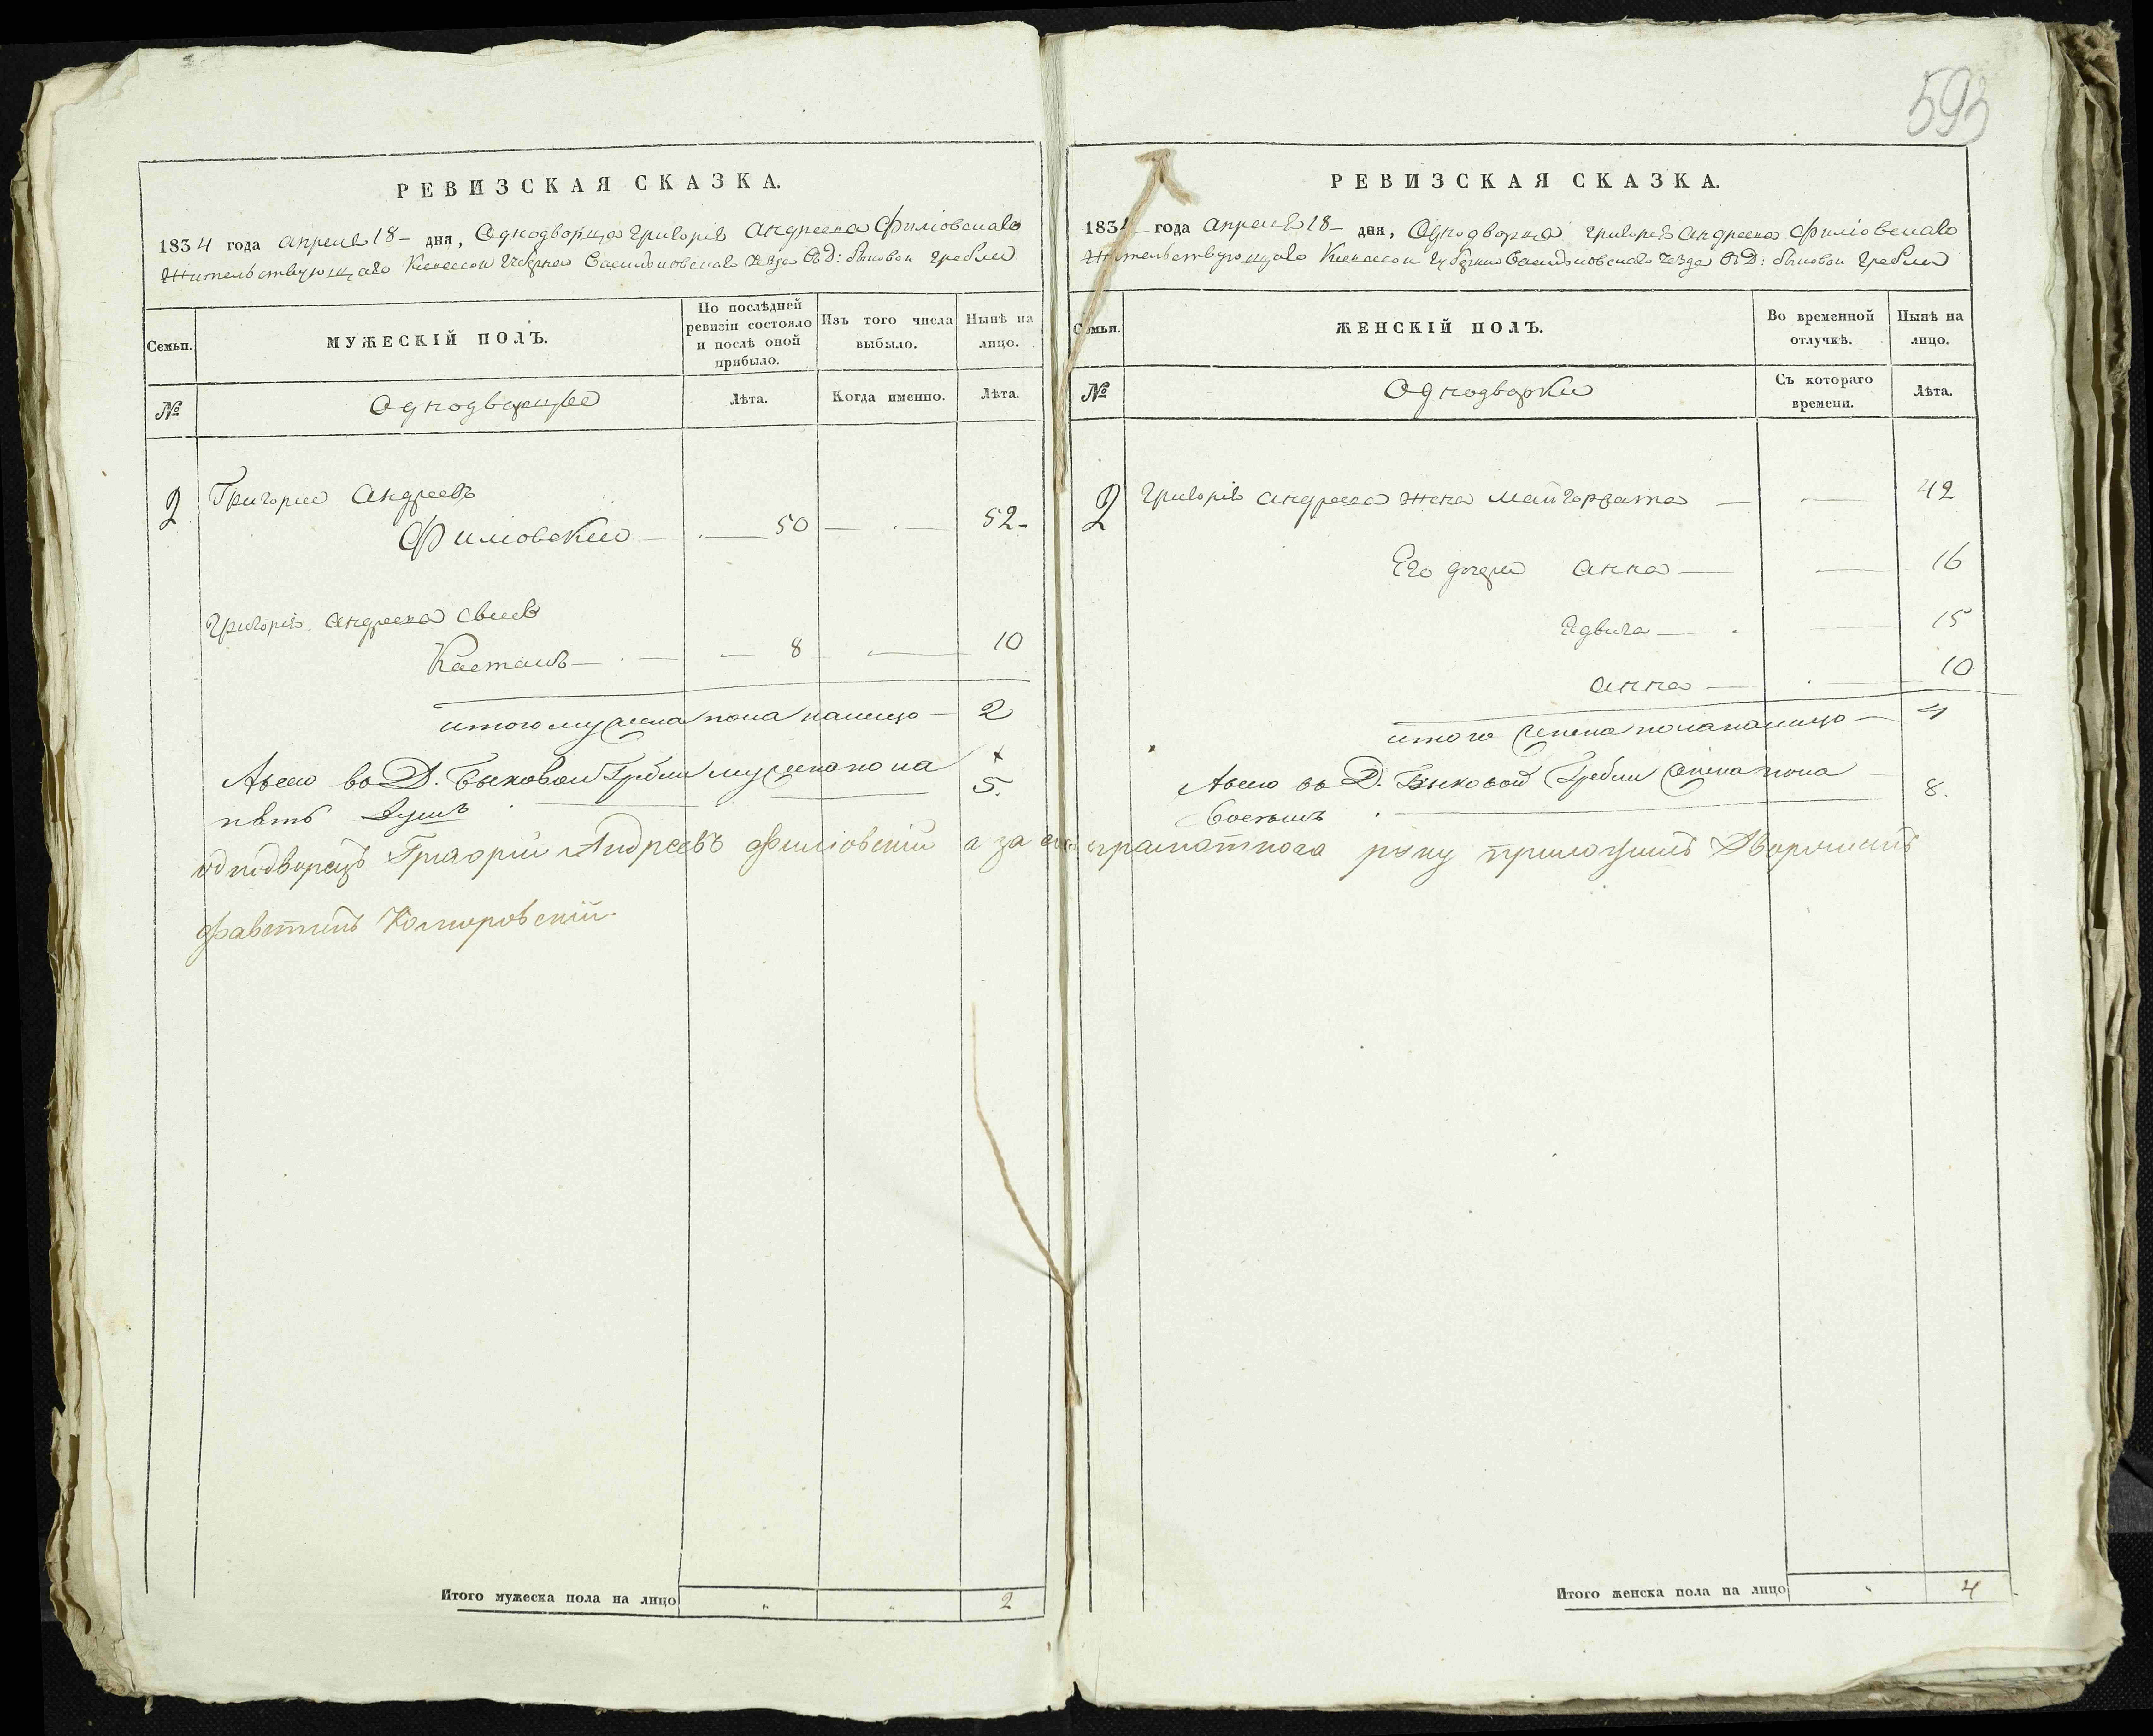 593
РЕВИЗСКАЯ СКАЗКА.
1834 года апреля 18 – дня, Однодворца Григорія Андреева Филіовскаго
Жительствующаго Киевской Губернии Васильковскаго Уезда Въ Д: Быковой Гребли
Семьи.
МУЖЕСКІЙ ПОЛЪ.
По послѣдней ревизіи состояло и послѣ оной прибыло.
Изъ того числа выбыло.
Нынѣ на лицо.
№
Однодворцы
Лѣта.
Когда именно.
Лѣта.
2 Григорий Андреевъ
Филіовский — 50 — 52
Григорія Андреева сынъ
— 8 — 10
итого мужеска пола налицо — 2
Авсего во Д. Быковой Гребли мужеска пола
пять Душъ 5.
однодворецъ Григорій Андреевъ Филіовскій а за его неграмотнога руку приложилъ Дворянинъ
Фавстинъ Коморовскій
Итого мужеска пола на лицо 2
РЕВИЗСКАЯ СКАЗКА.
1834 года апреля 18 – дня, Однодворца Григорія Андреева Филіовскаго
Жительствующаго Киевской Губернии Васильковскаго Уезда Въ Д: Быковой Гребли
Семьи.
ЖЕНСКІЙ ПОЛЪ.
Во временной отлучкѣ.
Нынѣ на лицо.
№
Однодворки
Съ котораго времени.
Лѣта.
2 Григорія Андреева жена Малгоржата — 42
Его дочери Анна — 16
Ядвига — 15
Анна — 10
итого женска пола налицо — 4
Авсего во Д. Быковой Гребли женска пола
восемь 8.
Итого женска пола на лицо 4